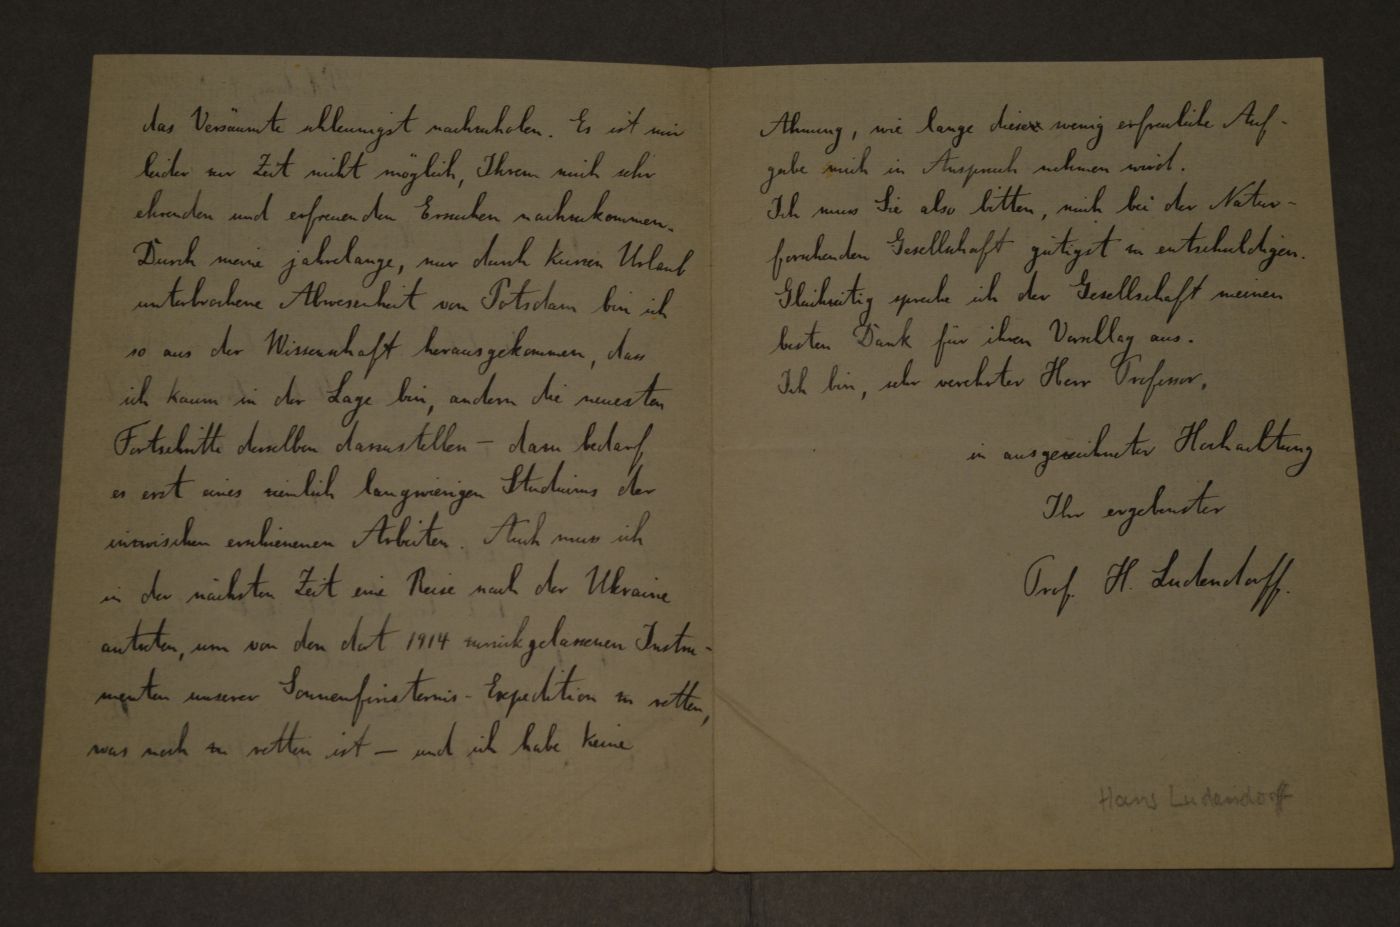 das Versäumte schleunigst nachzuholen. Es ist mir
leider zur Zeit nicht möglich, Ihrem mich sehr
ehrenden und erfreuenden Ersuchen nachzukommen.
Durch meine jahrelange, nur durch kurzen Urlaub
unterbrochene Abwesenheit von Potsdam bin ich
so aus der Wissenschaft herausgekommen, dass
ich kaum in der Lage bin, andern die neuesten
Fortschritte derselben darzustellen — dazu bedarf
es erst eines ziemlich langwierigen Studiums der
inzwischen erschienenen Arbeiten. Auch muss ich
in der nächsten Zeit eine Reise nach der Ukraine
antreten, um von den dort 1914 zurückgelassenen Instru-
menten unserer Sonnenfinsternis-Expedition zu retten,
was noch zu retten ist — und ich habe keine
Ahnung, wie lange diese wenig erfreuliche Auf-
gabe mich in Anspruch nehmen wird.
Ich muss Sie also bitten, mich bei der Natur-
forschenden Gesellschaft gütigst zu entschuldigen.
Gleichzeitig spreche ich der Gesellschaft meinen
besten Dank für ihren Vorschlag aus.
Ich bin, sehr verehrter Herr Professor,
in ausgezeichneter Hochachtung
Ihr ergebenster
Prof. H. Ludendorff.
Hans Ludendorff